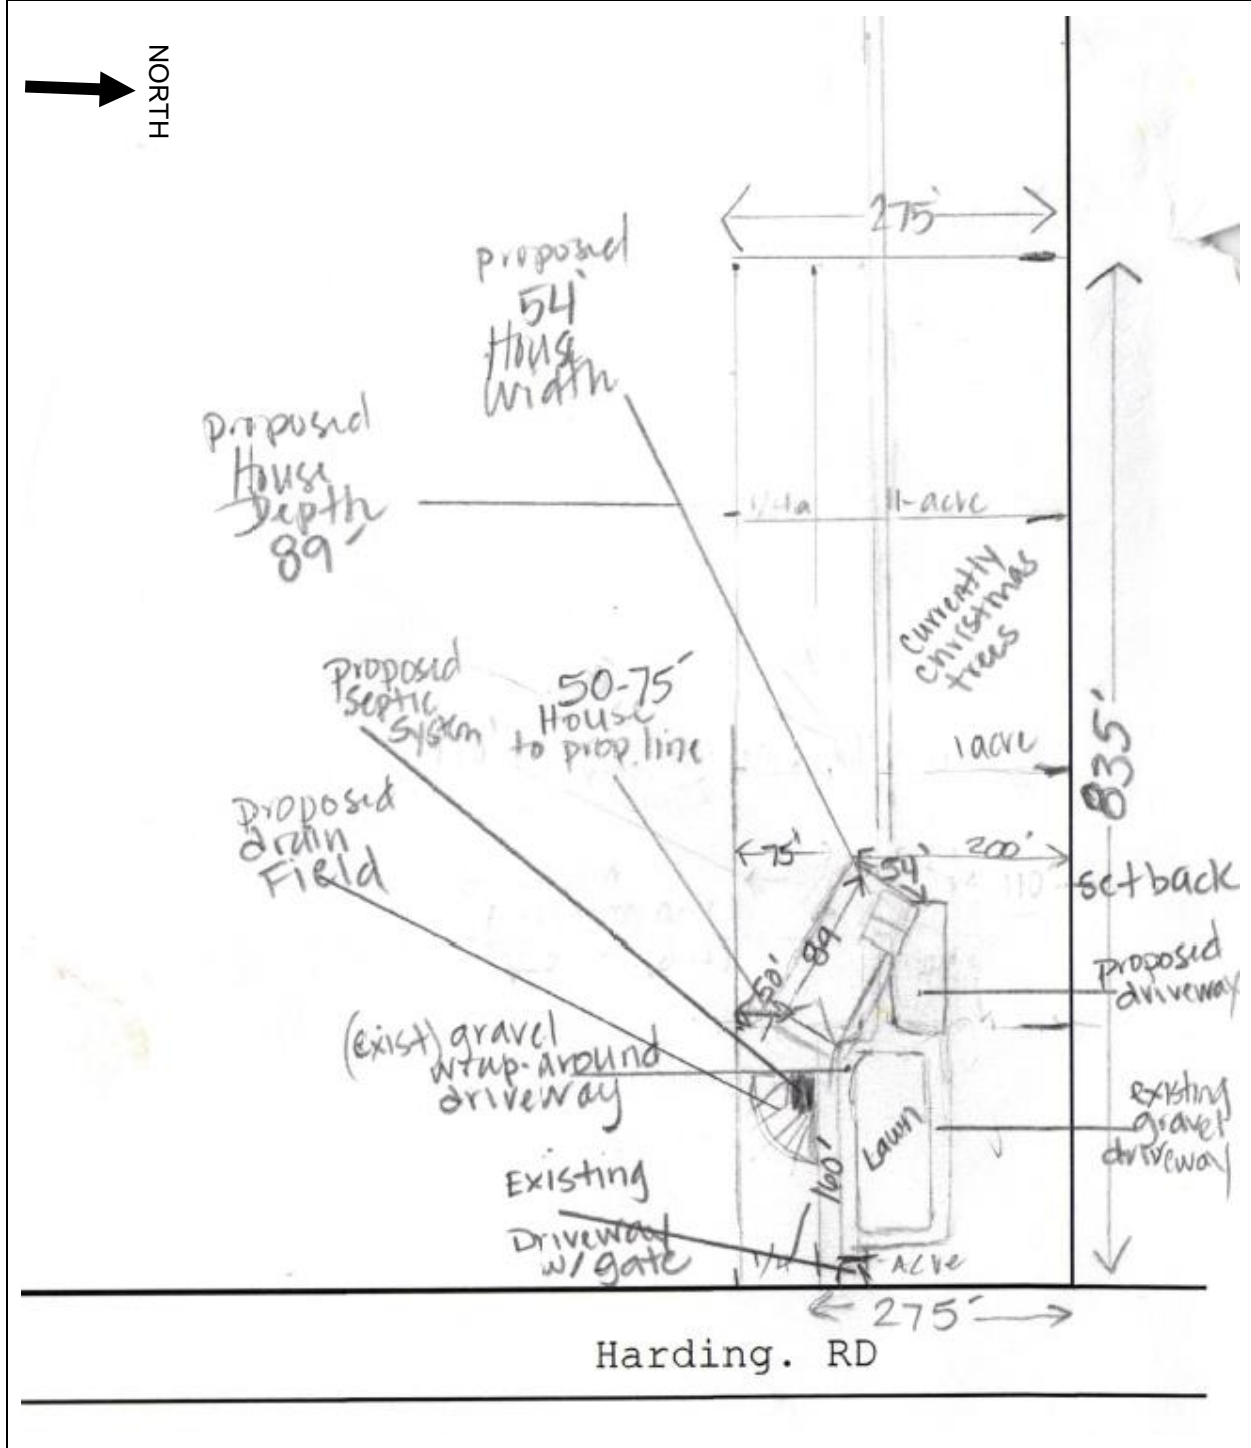 NORTH
275'
proposed
54'
House
Width
proposed
House
Depth
89'
1/4a
1-acre
Currently
christmas
trees
835'
proposed
septic
system
50-75'
House
to prop. line
1 acre
proposed
drain
Field
75'
54'
200'
110
setback
89
50'
proposed
driveway
(exist) gravel
wrap-around
driveway
existing
gravel
driveway
Lawn
160'
Existing
Driveway
w/ gate
1/4
1-Acre
275'
Harding. RD